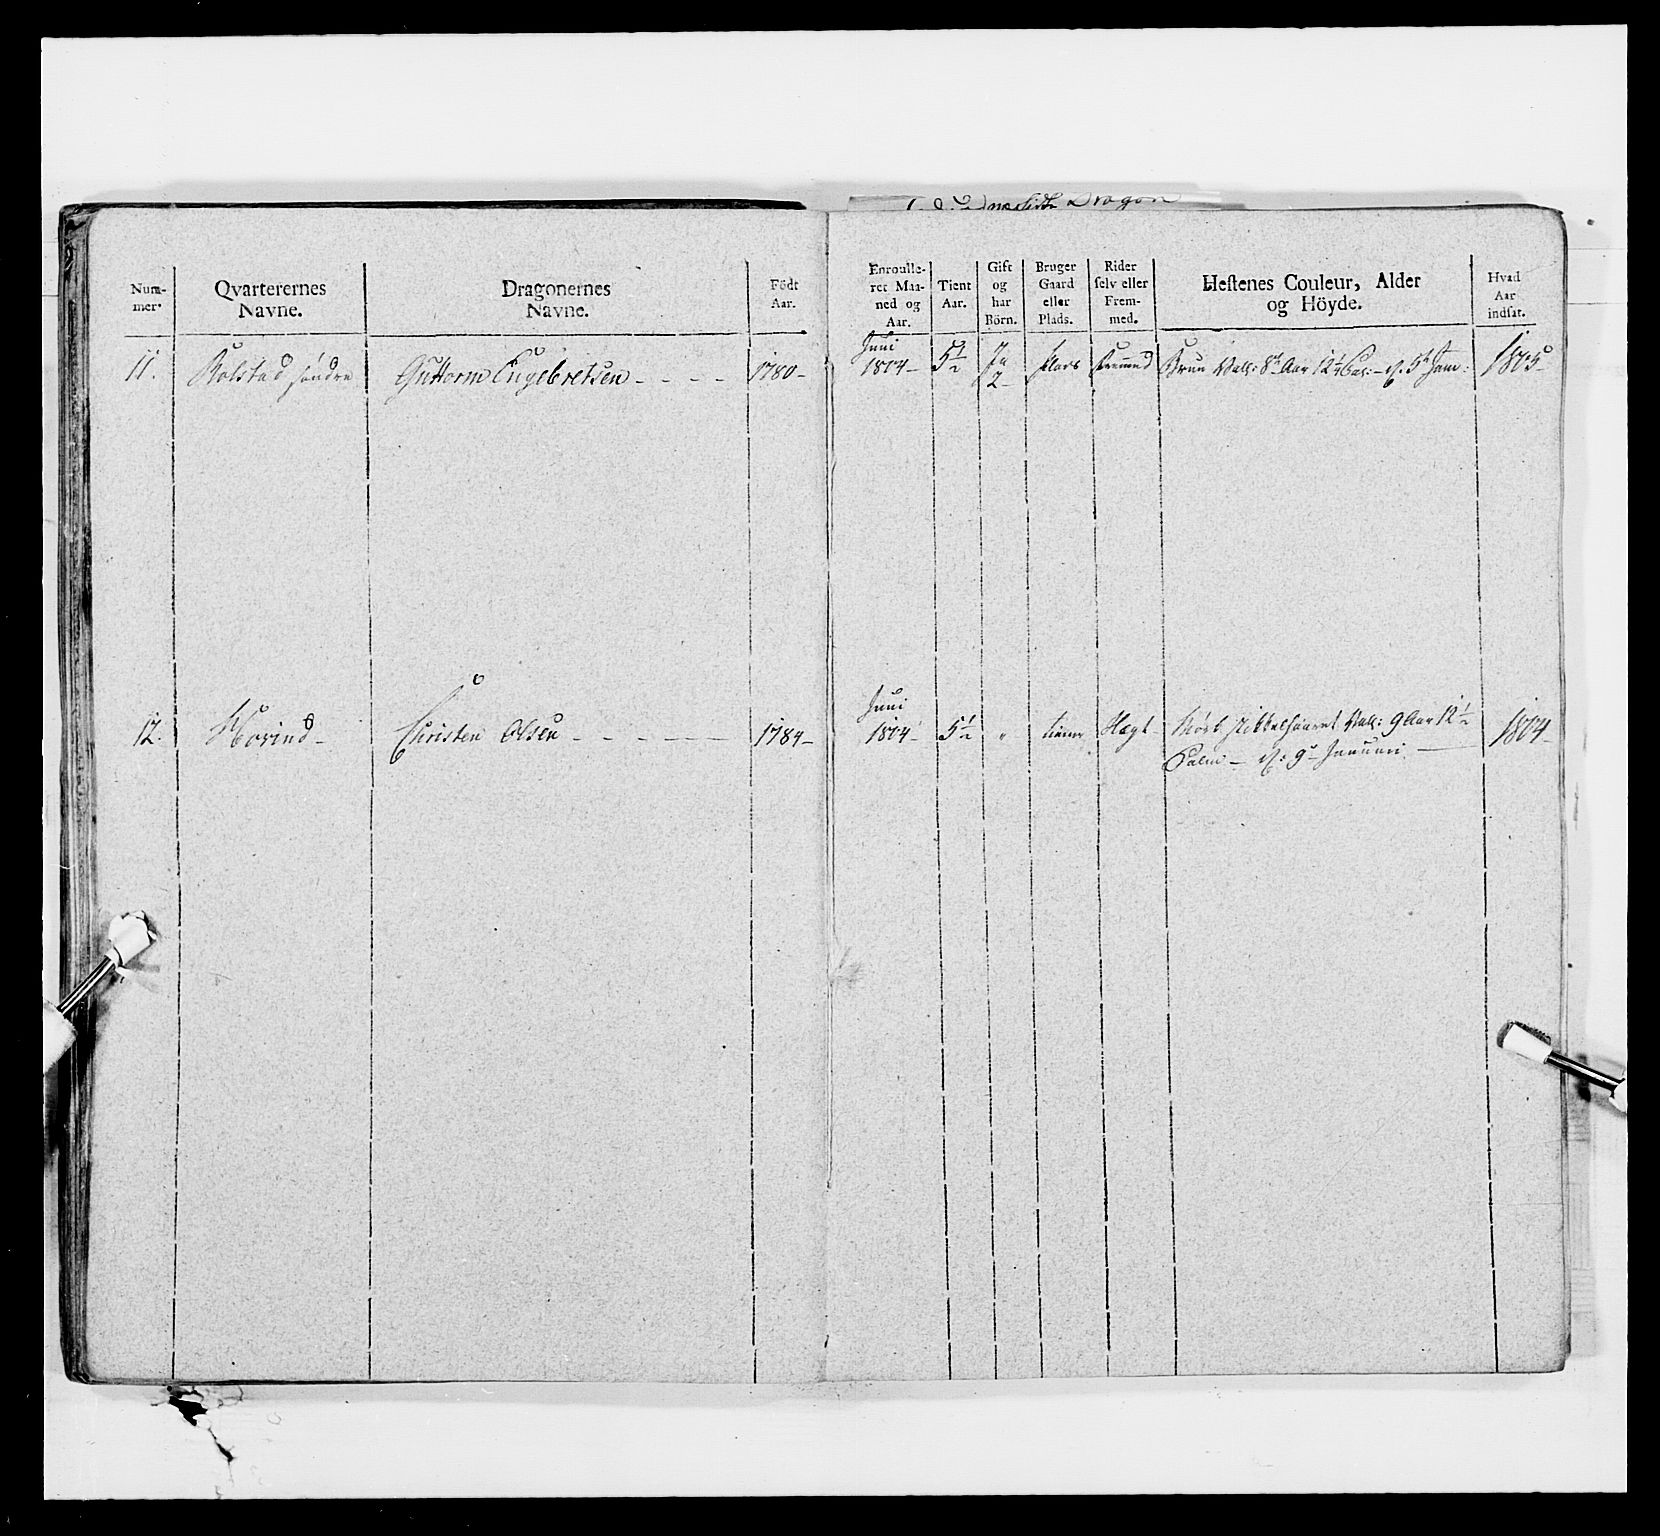 Num-
mer.
Qvarterernes
Navne.
Dragonernes
Navne.
Födt
Aar.
Enroulle-
ret Maa-
ned og
Aar.
Tient
Aar.
Gift
og
har
Börn.
Bruger
Gaard
eller
Plads.
Rider
ſelv eller
Frem-
med.
Heſtenes Couleur, Alder
og Höyde.
Hvad
Aar
indſat.
11.
Rolstad söndre
Guttorm Engebretsen
1780
Juni
1804
5 1/2
Ja
2
Plads
Fremmed
Brun Vall: 8t Aar 12 1/4 Pal:
1805
12.
Hovind
Christen Olsen
1784
Juni
1804
5 1/2
"
tiener
Hægt
Mörk Vall: 9 Aar 12 1/2
Palm 9 Januari
1804
Dragon